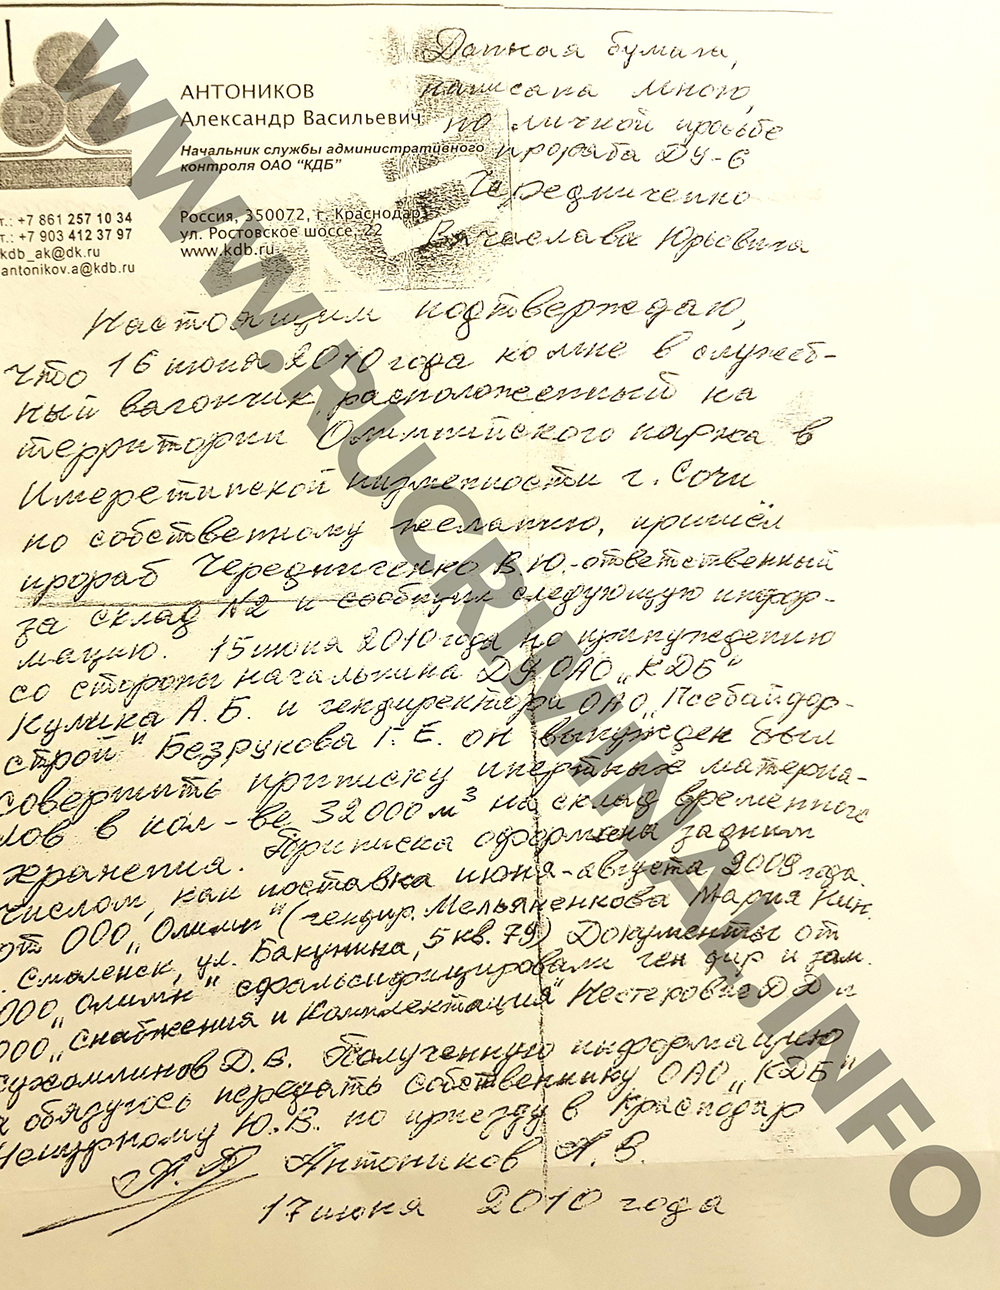 АНТОНИКОВ
Александр Васильевич
Начальник службы административного
контроля ОАО "КДБ"
т.: +7 861 257 10 34
т.: +7 903 412 37 97
kdb_ak@dk.ru
antonikov.a@kdb.ru
Россия, 350072, г. Краснодар
ул. Ростовское шоссе, 22
www.kdb.ru
Данная бумага,
написана мною,
по личной просьбе
прораба ДУ-6
Чередниченко
Вячеслава Юрьевича
Настоящим подтверждаю,
что 16 июня 2010 года ко мне в служеб-
ный вагончик, расположенный на
территории Олимпийского парка в
Имеретинской низменности г. Сочи
по собственному желанию, пришёл
прораб Чередниченко В.Ю.-ответственный
за склад №2 и сообщил следующую инфор-
мацию. 15 июня 2010 года по принуждению
со стороны начальника ДУ ОАО „КДБ"
Кулика А.Б. и гендиректора ОАО „Псебайдор-
строй" Безрукова Г.Е. он вынужден был
совершить приписку инертных материа-
лов в кол-ве 32000 м³ на склад временного
хранения. Приписка оформлена задним
числом, как поставка июня-августа 2009 года.
от ООО „Олимп" (гендир. Мельяненкова Мария Ник.
г. Смоленск, ул. Бакунина, 5 кв. 79) Документы от
ООО „Олимп" сфальсифицировали ген дир и зам.
ООО „Снабжения и Комплектация" Нестеровы Д.Д и
Сухомлинов Д.В. Полученную информацию
я обязуюсь передать собственнику ОАО „КДБ"
Чепурному Ю.В. по приезду в Краснодар
Антоников А.В.
17 июня 2010 года
WWW.RUCRIMINAL.INFO